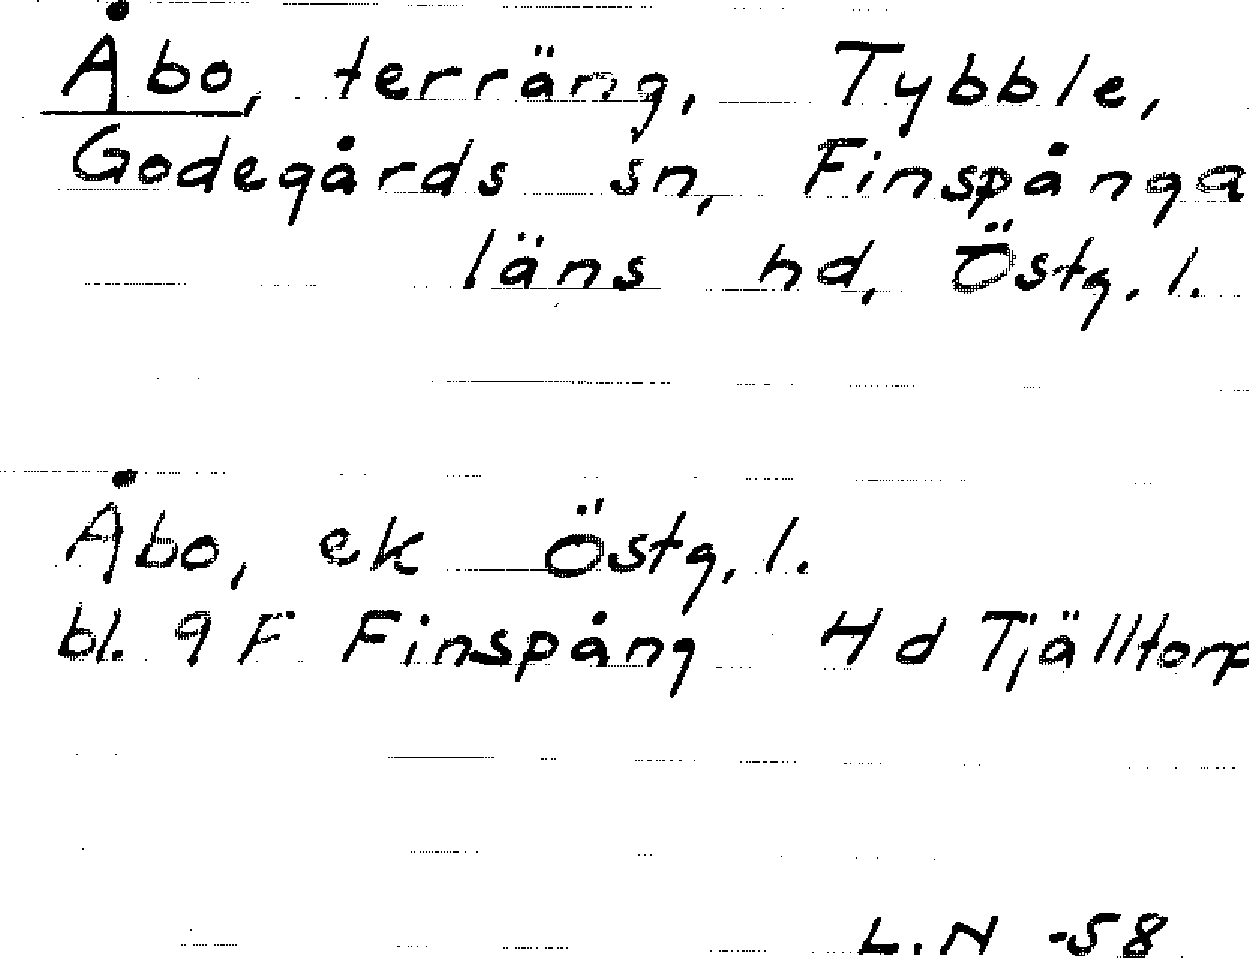 Åbo, terräng, Tybble,
Godegårds sn, Finspånga
läns hd, Östg. l.
Åbo, ek Östg. l.
bl. 9 F Finspång Hd Tjälltorp
L.N -58